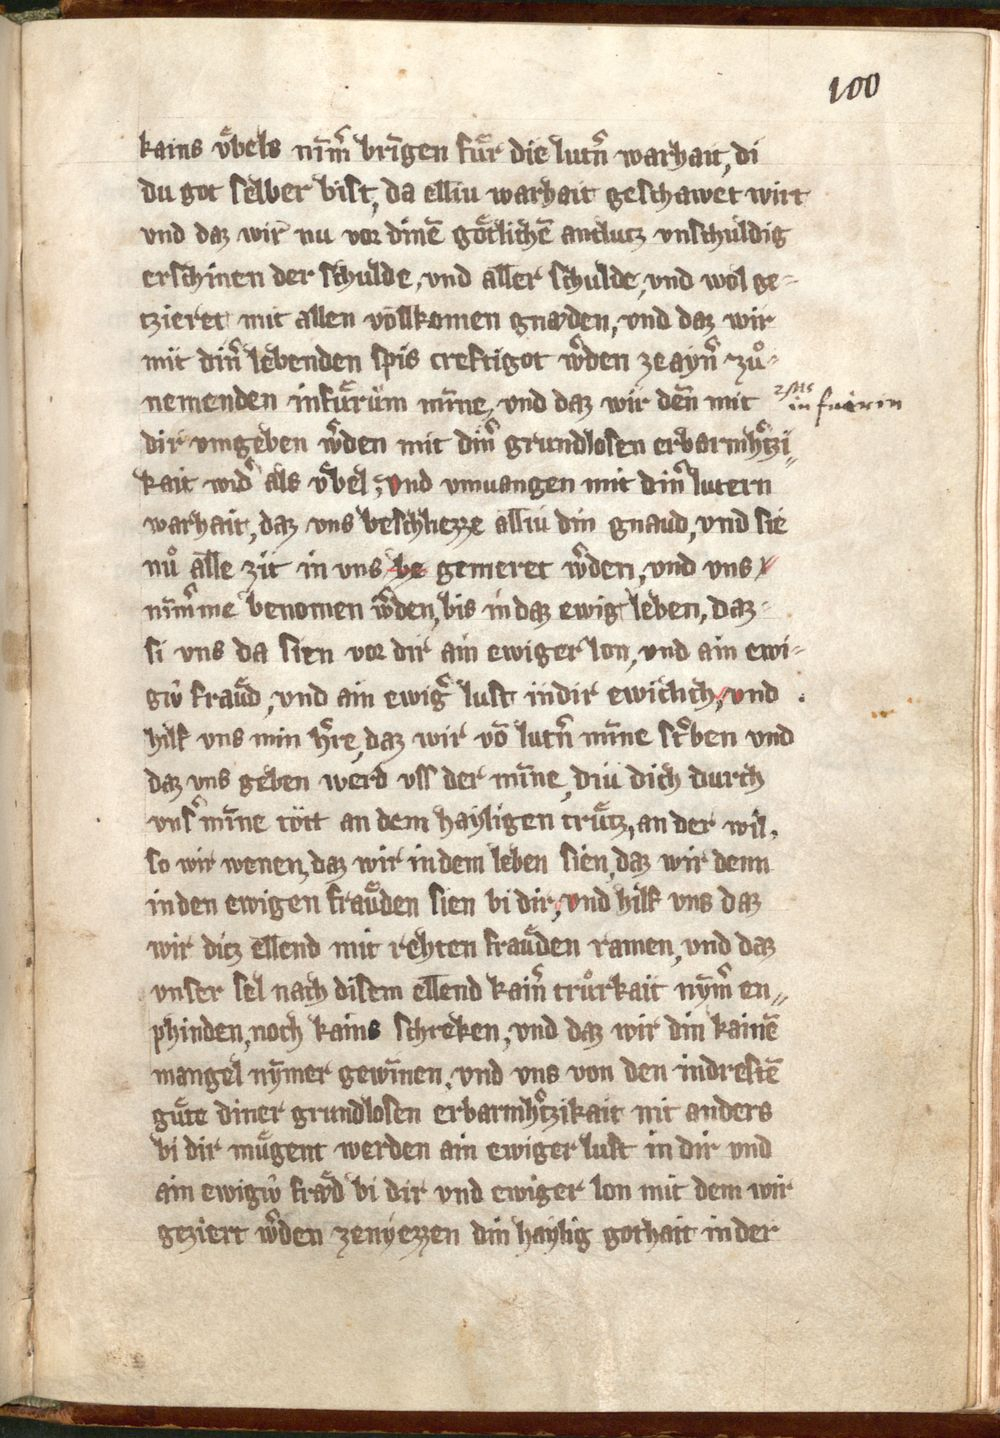 100
kains v̈bels nim̄͛ brīgen fu̇r die lutn͛ warhait, di
du got selber bist, da elliu warhait geschawet wirt
vnd daz wir nu vor dinē gȯtlichē antlutz vnschuldig
erschinen der schulde, vnd aller schulde, vnd wol ge-
tzieret mit allen vollkomen gnaden, vnd daz wir
mit din͛ lebenden spis creftigot w͛den ze ayn͛ zuͦ-
nemenden infu̇rüm mīne, vnd daz wir deñ mit
in fuirin
dir vmgeben w͛den mit din͛ grundlosen erbarmh͛tzi-
kait wid͛ als v̈bel, vnd vmuangen mit din͛ lutern
warhait, daz vns beschliezze alliu din gnaud, vnd sie
nuͦ alle zit in vns be gemeret w͛den, vnd vns
nim͛me benomen w͛den, bis in daz ewig leben, daz
si vns da sien vor dir ain ewiger lon, vnd ain ewi-
giv fraͤud, vnd ain ewig͛ lust in dir ewiclich, vnd
hilf vns min h͛re, daz wir vō lutn͛ mīne st͛ben vnd
daz vns geben werd vss der mīne, diu dich durch
vns͛ mīne tött an dem hayligen crüͤtz, an der wil,
so wir wenen, daz wir in dem leben sien, daz wir denn
in den ewigen fraͤuden sien bi dir, vnd hilf vns daz
wir ditz ellend mit rehten fraͤuden ramen, vnd daz
vnser sel nach disem ellend kain͛ truͦrkait nym͛ en-
phinden, noch kains schreken, vnd daz wir din kainē
mangel nȳmer gewīnen, vnd vns von den indrestē
guͤte diner grundlosen erbarmh͛tzikait nit anders
bi dir muͤgent werden ain ewiger lust in dir vnd
ain ewigiv fraͤd bi dir vnd ewiger lon mit dem wir
geziert w͛den ze nyezzen din haylig gothait in der